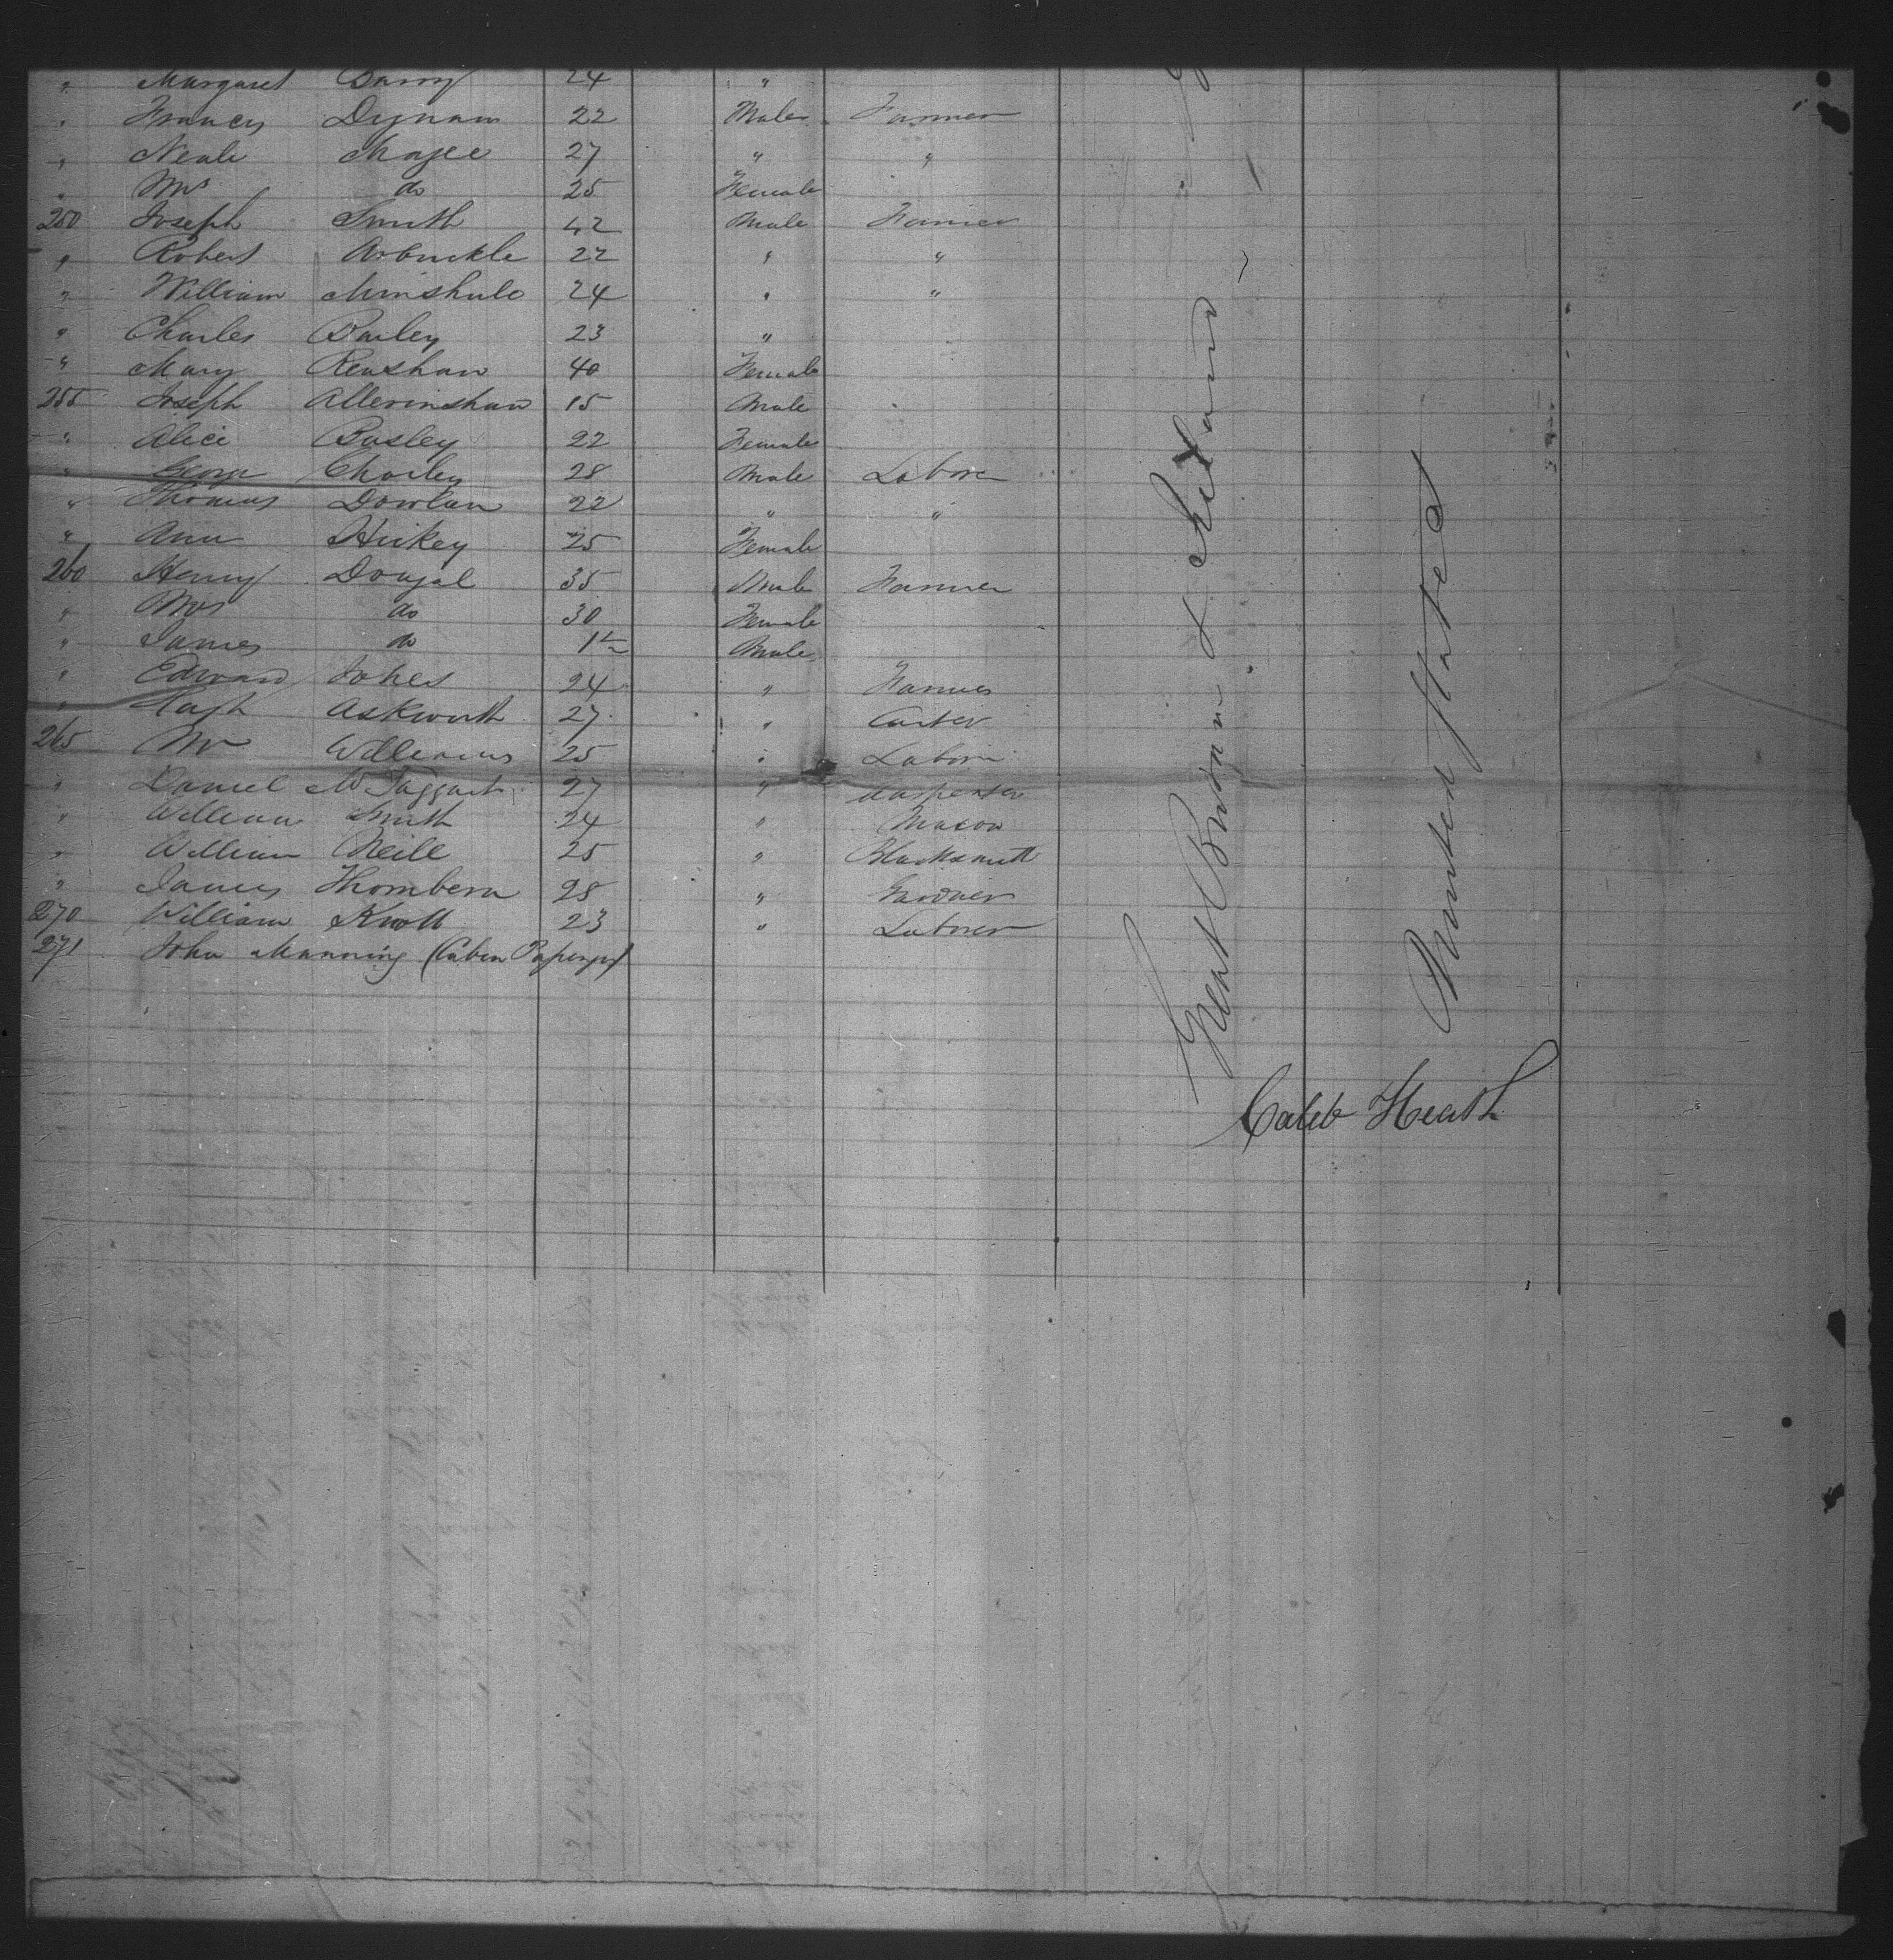 " Margaret Barry 24 "
" Francis Dignam 22 Male Farmer
" Neale Magee 27 " "
" Mrs do 25 Female
250 Joseph Smith 42 Male Farmer
" Robert Arbuckle 22 " "
" William Minshule 24 " "
" Charles Barley 23 "
" Mary Renshaw 40 Female
255 Joseph Allerinshaw 15 Male
" Alice Busley 22 Female
" George Chorley 28 Male Labore
" Thomas Dowlan 22 " "
" Ann Hickey 25 Female
260 Henry Dougal 35 Male Farmer
" Mrs do 30 Female
" James do 1½ Male
" Edward Jones 24 " Farmer
" Hugh Askworth 27 " Carter
265 Mr Williams 25 " Labore
" Daniel McTaggart 27 " Carpenter
" William Smith 24 " Mason
" William Neill 25 " Blacksmith
" James Thornbern 28 " Gardner
270 William Knott 23 " Laborer
271 John Manning (Cabin Passenger)
Great Britain & Ireland
United States
Caleb Heath